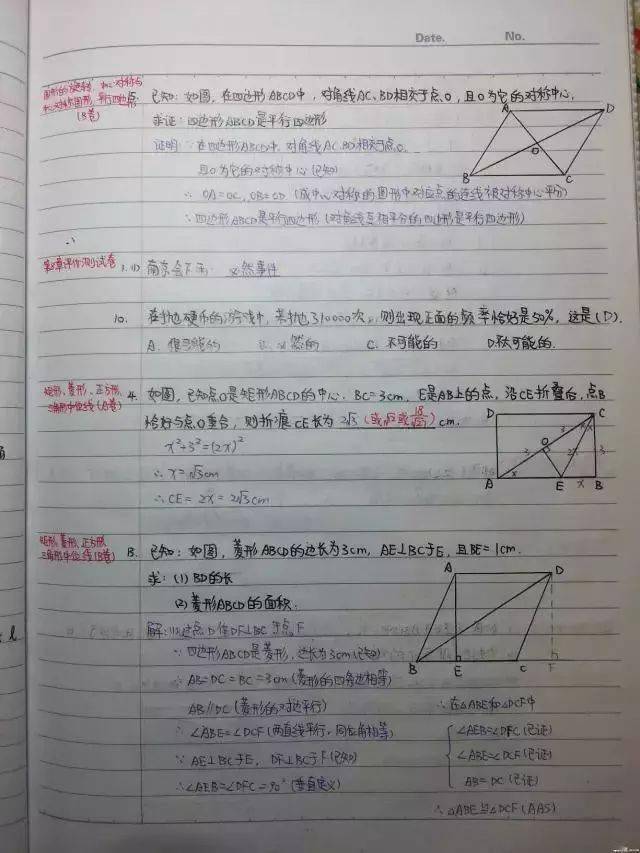 Date. No.
图形的旋转, 中心对称与
中心对称图形, 平行四边形
(B卷)
已知: 如图, 在四边形ABCD中, 对角线AC、BD相交于点O, 且O为它的对称中心.
求证: 四边形ABCD是平行四边形
证明: ∵在四边形ABCD中, 对角线AC、BD相交于点O,
且O为它的对称中心(已知)
∴OA=OC, OB=OD (成中心对称的图形中对应点的连线被对称中心平分)
∴四边形ABCD是平行四边形 (对角线互相平分的四边形是平行四边形)
A D
O
B C
第8章评价测试卷 1. (1) 南京会下雨: 必然事件
10. 在抛硬币的游戏中, 若抛10000次, 则出现正面的频率恰好是50%, 这是(D).
A. 很可能的 B. 必然的 C. 不可能的 D.不太可能的.
矩形、菱形、正方形、
三角形中位线(A卷)
4. 如图, 已知点O是矩形ABCD的中心, BC=3cm, E是AB上的点, 沿CE折叠后, 点B
恰好与点O重合, 则折痕CE长为 2√3 (或√12或) cm.
x²+3²=(2x)²
∴x=√3cm
∴CE=2x=2√3cm
D C
O
3 3 3
x x
A E B
矩形、菱形、正方形、
三角形中位线(B卷)
13. 已知: 如图, 菱形ABCD的边长为3cm, AE⊥BC于E, 且BE=1cm.
求: (1) BD的长
(2) 菱形ABCD的面积.
解: (1)过点D作DF⊥BC于点F
∵四边形ABCD是菱形, 边长为3cm(已知)
∴AB=DC=BC=3cm(菱形的四条边相等)
AB∥DC(菱形的对边平行)
∴∠ABE=∠DCF(两直线平行, 同位角相等)
∵AE⊥BC于E, DF⊥BC于F(已知)
∴∠AEB=∠DFC=90°(垂直定义)
A D
B E C F
∴在△ABE和△DCF中
∠AEB=∠DFC(已证)
∠ABE=∠DCF(已证)
AB=DC(已证)
∴△ABE≌△DCF(AAS)